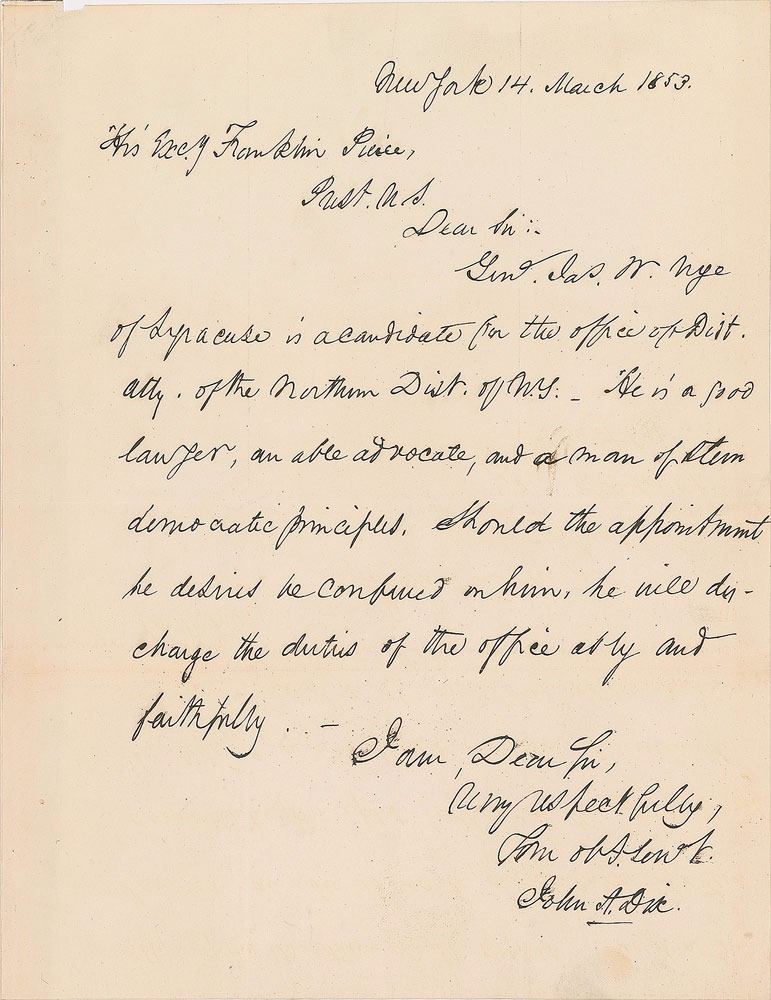 New York 14. March 1853.
His Exc.y Franklin Pierce,
Prest. U.S.
Dear Sir:-
Genl. Jas. W. Nye
of Syracuse is a candidate for the office of Dist.
atty. of the Northern Dist. of N.Y. - He is a good
lawyer, an able advocate, and a man of stern
democratic principles. Should the appointment
he desires be conferred on him, he will dis-
charge the duties of the office ably and
faithfully. -
I am, Dear Sir,
Very respectfully,
Your obt. servt.
John A. Dix.